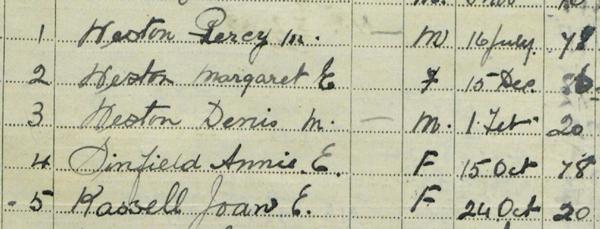 1 Weston Percy M. — M 16 July 78
2 Weston Margaret E F 15 Dec.
3 Weston Denis M. — M. 1 Feb 20
4 Dinfield Annie. E. F 15 Oct 78
5 Kassell Joan E. F 24 Oct 20